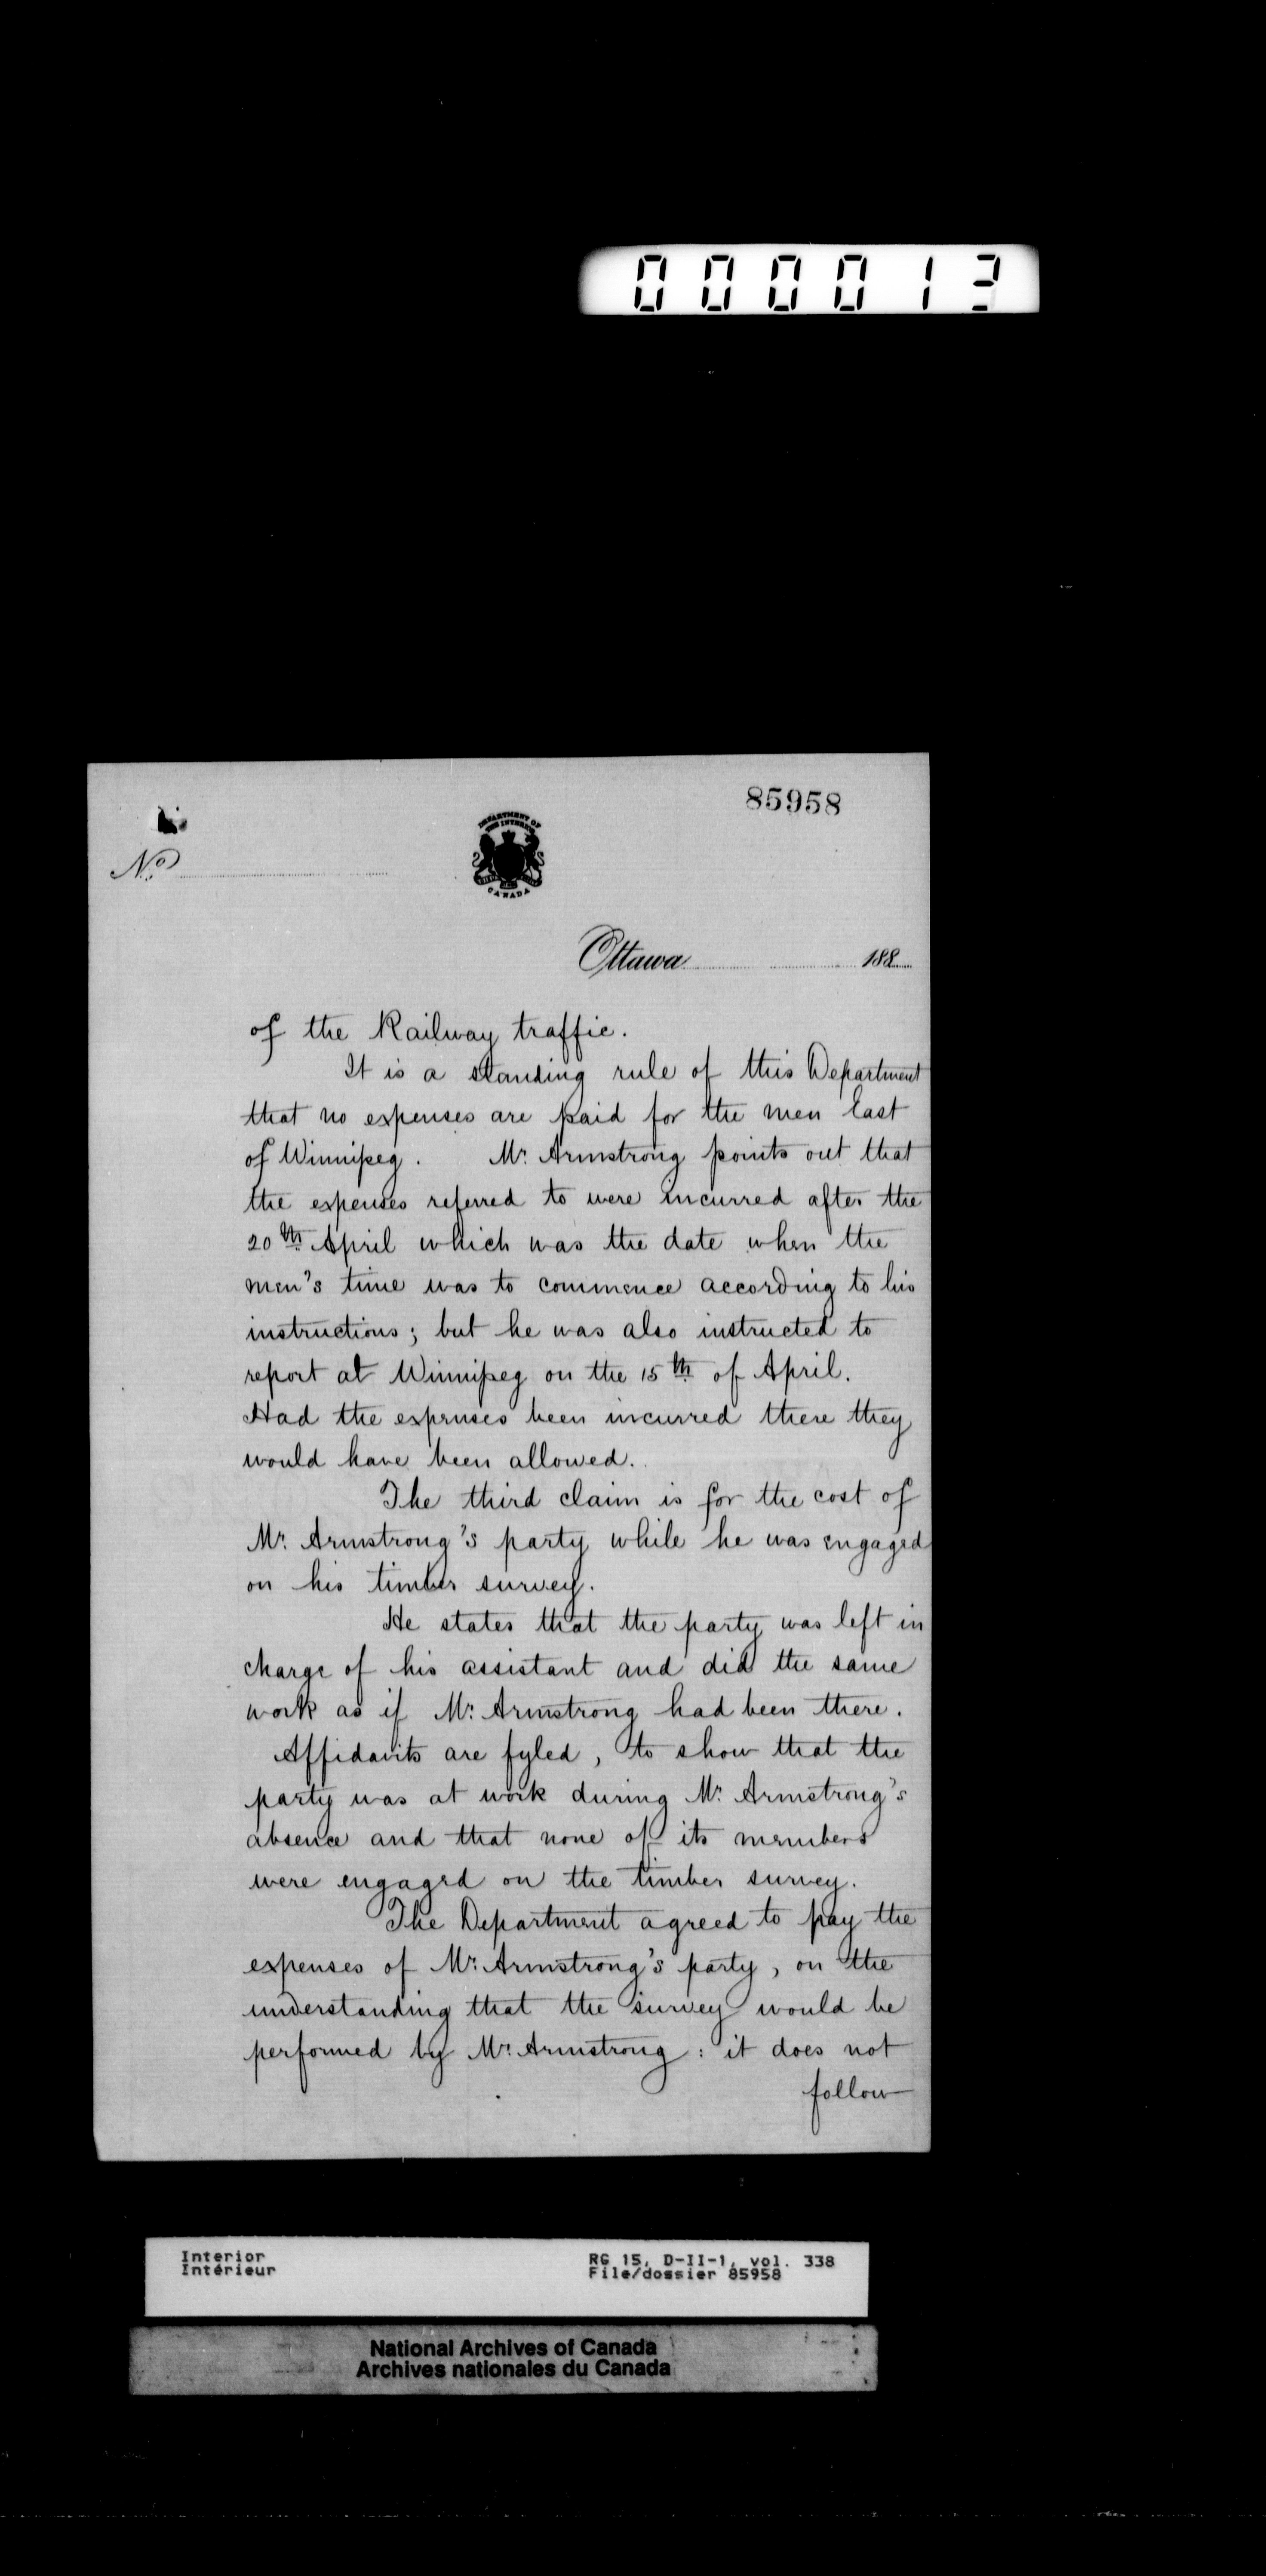 000013
85958
No.
DEPARTMENT OF
THE INTERIOR
CANADA
Ottawa 188
of the Railway traffic.
It is a standing rule of this Department
that no expenses are paid for the men East
of Winnipeg. Mr. Armstrong points out that
the expenses referred to were incurred after the
20th April which was the date when the
men's time was to commence according to his
instructions; but he was also instructed to
report at Winnipeg on the 15th of April.
Had the expenses been incurred there they
would have been allowed.
The third claim is for the cost of
Mr. Armstrong's party while he was engaged
on his timber survey.
He states that the party was left in
charge of his assistant and did the same
work as if Mr. Armstrong had been there.
Affidavits are fyled, to show that the
party was at work during Mr. Armstrong's
absence and that none of its members
were engaged on the timber survey.
The Department agreed to pay the
expenses of Mr. Armstrong's party, on the
understanding that the survey would be
performed by Mr. Armstrong: it does not
follow
Interior RG 15, D-II-1, vol. 338
Intérieur File/dossier 85958
National Archives of Canada
Archives nationales du Canada